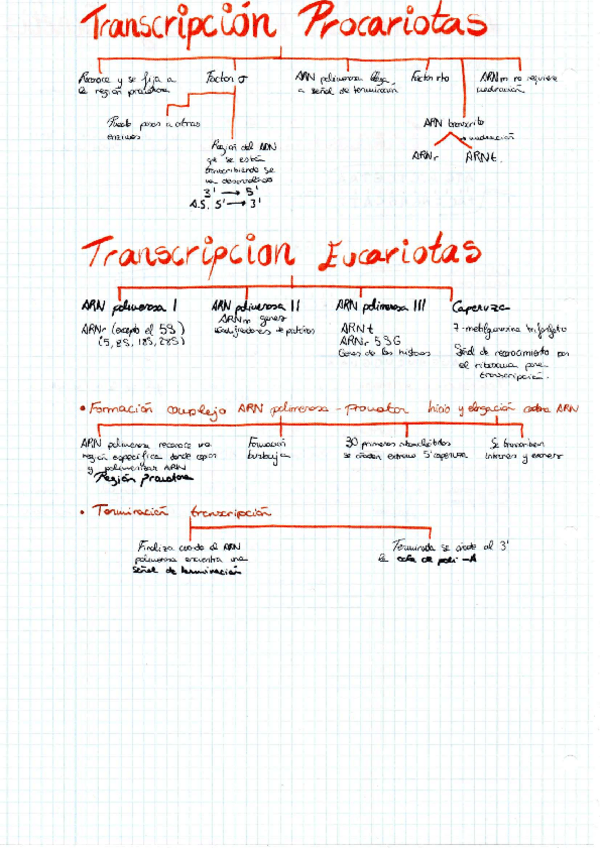 Transcripción Procariotas
Reconoce y se fija a
la región promotora
Factor σ
ARN polimerasa llega
a señal de terminación
Factor rho
ARNm no requiere
maduración
Puede pasar a otras
enzimas
Región del ADN
que se está
transcribiendo se
va desenrollando
3' → 5'
A.S. 5' → 3'
ARN transcrito
maduración
ARNr
ARNt.
Transcripcion Eucariotas
ARN polimerasa I
ARNr (excepto el 5S)
(5, 8S, 18S, 28S)
ARN polimerasa II
ARNm genes
codificadores de proteínas
ARN polimerasa III
ARNt
ARNr 5S
Genes de las histonas
Caperuza
7-metilguanosina trifosfato
Señal de reconocimiento por
el ribosoma para
transcripción.
• Formación complejo ARN polimerasa - promotor
Inicio y elongación cadena ARN
ARN polimerasa reconoce una
región específica donde copiar
y polimerizar ARN
Región promotora
Formación
burbuja
30 primeros ribonucleótidos
se añaden extremo 5' caperuza
Se transcriben
intrones y exones
• Terminación transcripción
Finaliza cuando el ARN
polimerasa encuentra una
señal de terminación
Terminada se añade al 3'
la cola de poli-A